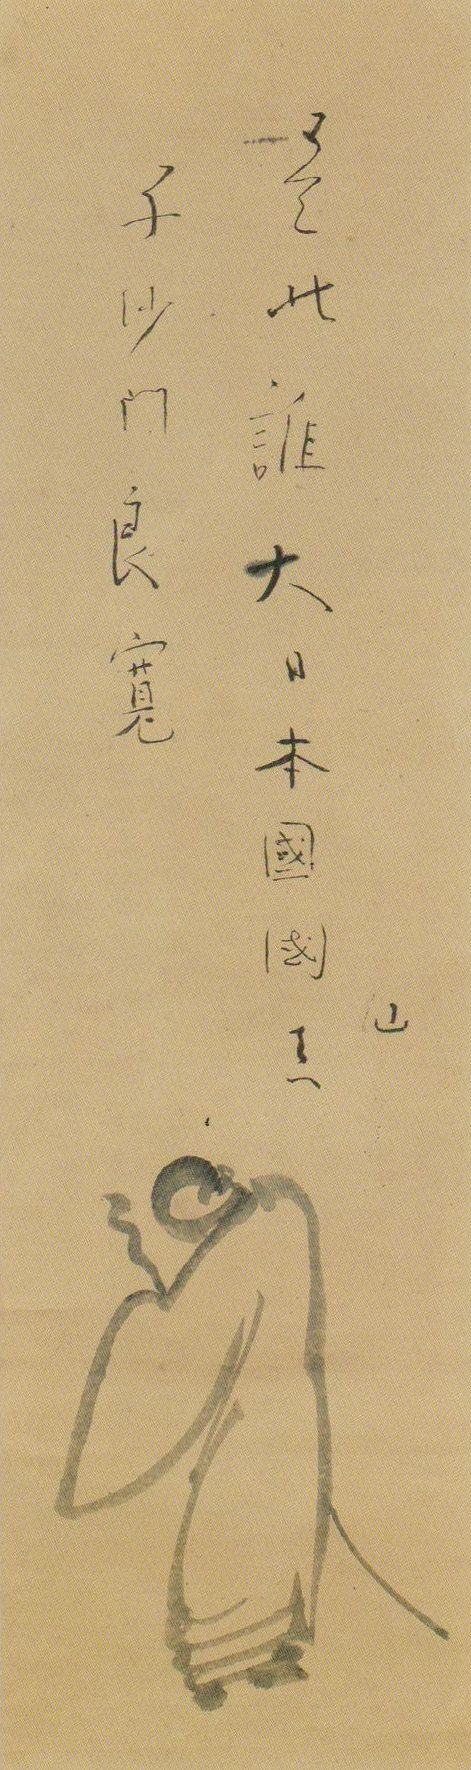 是此誰大日本國國仙真
子沙門良寛